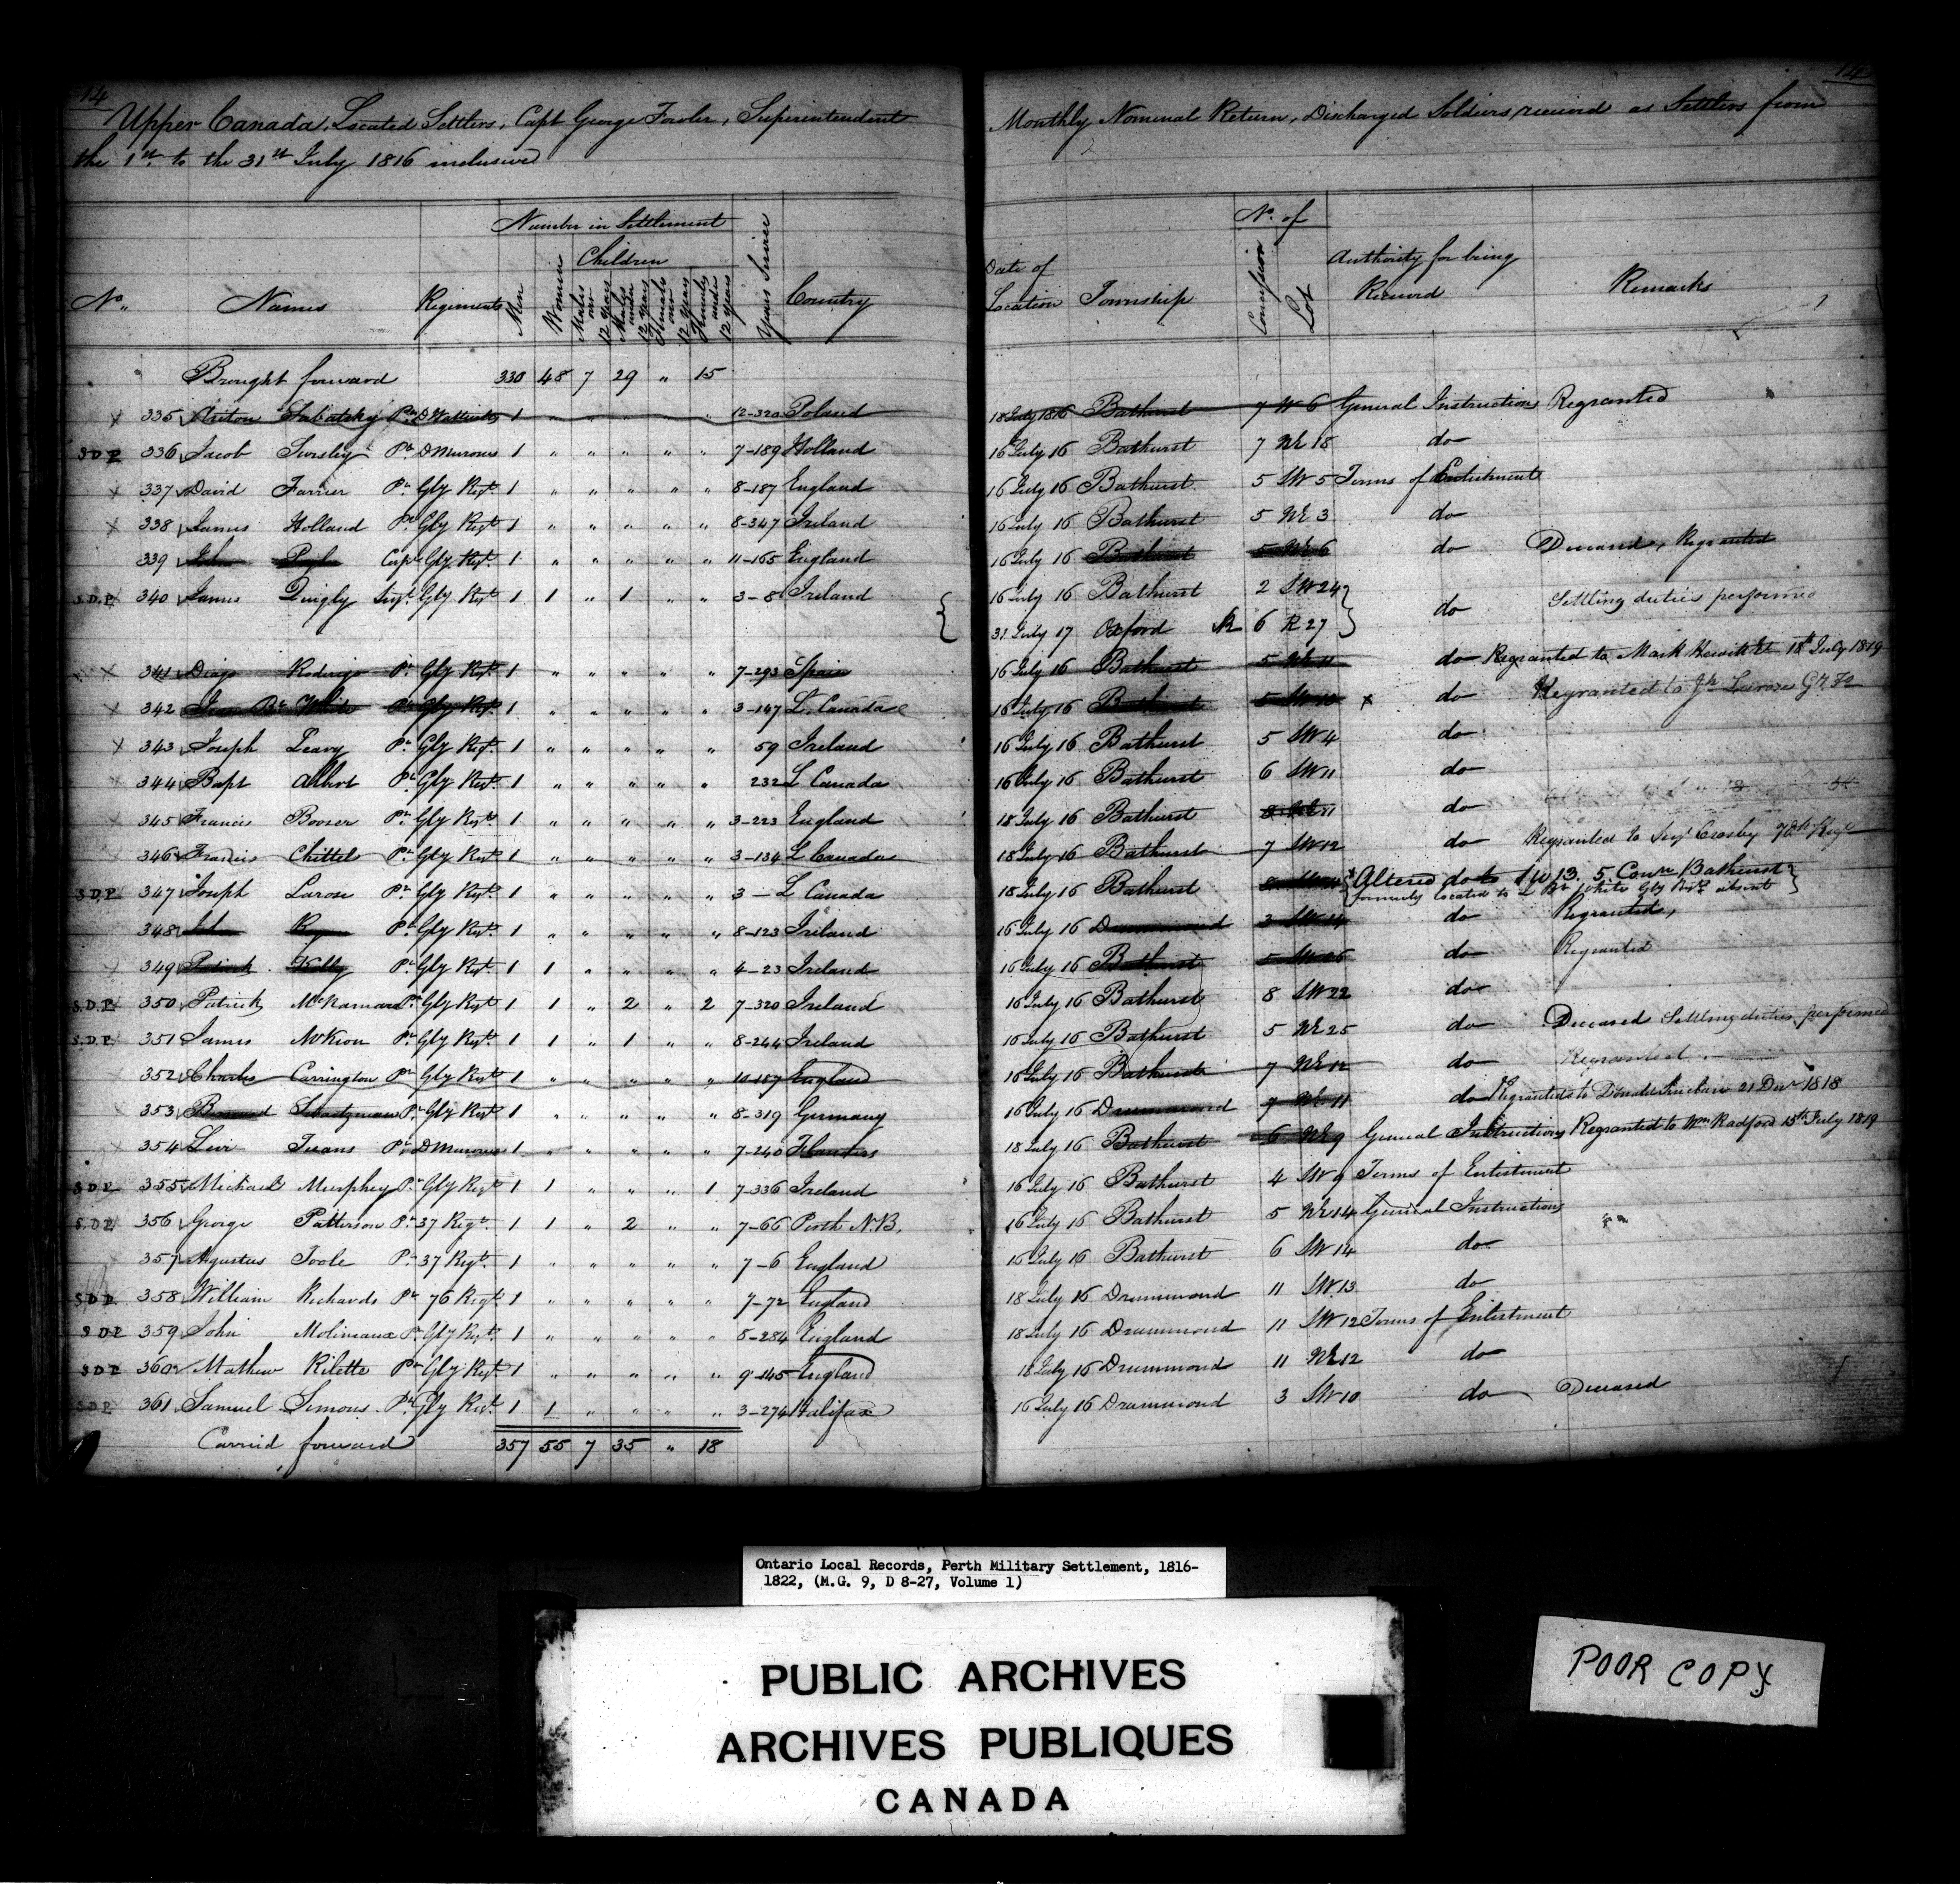 14
14
Upper Canada, Located Settlers, Capt George Fowler, Superintendent Monthly Nominal Return, Discharged Soldiers received as Settlers from
the 1st to the 31st July 1816 inclusive
Number in Settlement
Children
No. of
No. Names Regiments Men Women Males over 12 years Males under 12 years Females over 12 years Females under 12 years Years Service Country Date of Location Township Concession Lot Authority for being Received Remarks
Brought forward 330 48 7 29 " 15
335 Anton Pte D Wattevilles 1 12-320 Poland 18 July 1816 Bathurst 7 W 6 General Instructions Regranted
S D P 336 Jacob Pte D Meurons 1 " " " " " 7-189 Holland 16 July 16 Bathurst 7 NE 18 do
337 David Farrier Pte Gly Regt 1 " " " " " 8-187 England 16 July 16 Bathurst 5 SW 5 Terms of Enlistment
338 James Holland Pte Gly Regt 1 " " " " " 8-347 Ireland 16 July 16 Bathurst 5 NE 3 do
339 John Corpl Gly Regt 1 " " " " " 11-165 England 16 July 16 Bathurst 5 NE 6 do Deceased, Regranted
S.D.P. 340 James Quigly Sergt Gly Regt 1 1 " 1 " " 3-8 Ireland 16 July 16 Bathurst 2 SW 24 do Settling duties performed
31 July 17 Oxford 6 R 27
341 Diago Rodrigo Pt Gly Regt 1 " " " " " 7-293 Spain 16 July 16 Bathurst 5 NE 11 do Regranted to Mark Hewitt 18th July 1819
342 White Pte Gly Regt 1 " " " " " 3-147 L. Canada 16 July 16 Bathurst 5 SW 13 x do Regranted to Jh Larose
343 Joseph Leavy Pte Gly Regt 1 " " " " " 59 Ireland 16 July 16 Bathurst 5 SW 4 do
344 Bapt Albert Pte Gly Regt 1 " " " " " 232 L Canada 16 July 16 Bathurst 6 SW 11 do
345 Francis Booser Pte Gly Regt 1 " " " " " 3-223 England 18 July 16 Bathurst 8 NE 11 do
346 Francis Chittel Pte Gly Regt 1 " " " " " 3-134 L Canada 18 July 16 Bathurst 7 SW 12 do Regranted to Sergt Crosby
S.D.P. 347 Joseph Larose Pte Gly Regt 1 " " " " " 3 - L Canada 18 July 16 Bathurst Altered do to SW 13. 5. Conn Bathurst
formerly located to White Gly Regt absent
348 John Ryan Pte Gly Regt 1 " " " " " 8-123 Ireland 16 July 16 Drummond 3 SW 14 do Regranted,
349 Patrick Kelly Pte Gly Regt 1 1 " " " " 4-23 Ireland 16 July 16 Bathurst 5 SW 26 do Regranted
S.D.P. 350 Patrick McNamara Pte Gly Regt 1 1 " 2 " 2 7-320 Ireland 16 July 16 Bathurst 8 SW 22 do
S.D.P. 351 James McKion Pte Gly Regt 1 1 " 1 " " 8-244 Ireland 16 July 16 Bathurst 5 NE 25 do Deceased Settling duties performed
352 Charles Carrington Pte Gly Regt 1 " " " " " 10-187 England 16 July 16 Bathurst 7 NE 12 do Regranted
353 Pte Gly Regt 1 " " " " " 8-319 Germany 16 July 16 Drummond 7 NE 11 do Regranted to Donald 21 Decr 1818
354 Levi Pte D Meurons 1 " " " " " 7-240 Flanders 18 July 16 Bathurst 6 NE 9 General Instructions Regranted to Wm Radford 15th July 1819
S D P 355 Michael Murphey Pte Gly Regt 1 1 " " " 1 7-336 Ireland 16 July 16 Bathurst 4 SW 9 Terms of Enlistment
S.D.P. 356 George Patterson Pte 37 Regt 1 1 " 2 " " 7-66 Perth N.B. 16 July 16 Bathurst 5 NE 14 General Instructions
357 Agustus Toole Pte 37 Regt 1 " " " " " 7-6 England 16 July 16 Bathurst 6 SW 14 do
S.D.P. 358 William Richards Pte 76 Regt 1 " " " " " 7-72 England 18 July 16 Drummond 11 SW 13 do
S D P 359 John Molineaux Pte Gly Regt 1 " " " " " 5-284 England 18 July 16 Drummond 11 SW 12 Terms of Enlistment
S D P 360 Mathew Rilette Pte Gly Regt 1 " " " " " 9-145 England 18 July 16 Drummond 11 NE 12 do
S D P 361 Samuel Simons Pte Gly Regt 1 1 " " " " 3-274 Halifax 16 July 16 Drummond 3 SW 10 do Deceased
Carried forward 357 55 7 35 " 18
Ontario Local Records, Perth Military Settlement, 1816-
1822, (M.G. 9, D 8-27, Volume 1)
PUBLIC ARCHIVES
ARCHIVES PUBLIQUES
CANADA
POOR COPY